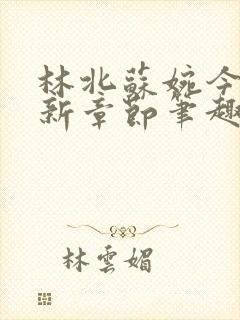 林北蘇婉今
新章節筆趣
林雲媚